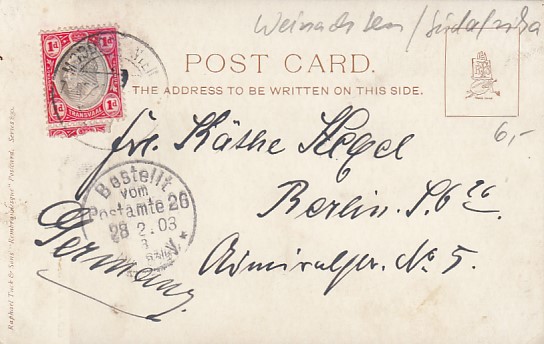 Weinachten / Südafrika
POST CARD.
THE ADDRESS TO BE WRITTEN ON THIS SIDE.
1d 1d
1d 1d
TRANSVAAL
6,-
Frl. Käthe Kegel
Berlin. S. 6 26.
Admiralstr. No 5.
Germany.
Bestellt
vom
Postamte 26
28 2.03
Raphael Tuck & Sons' "Rembrandtesque" Postcard, Series